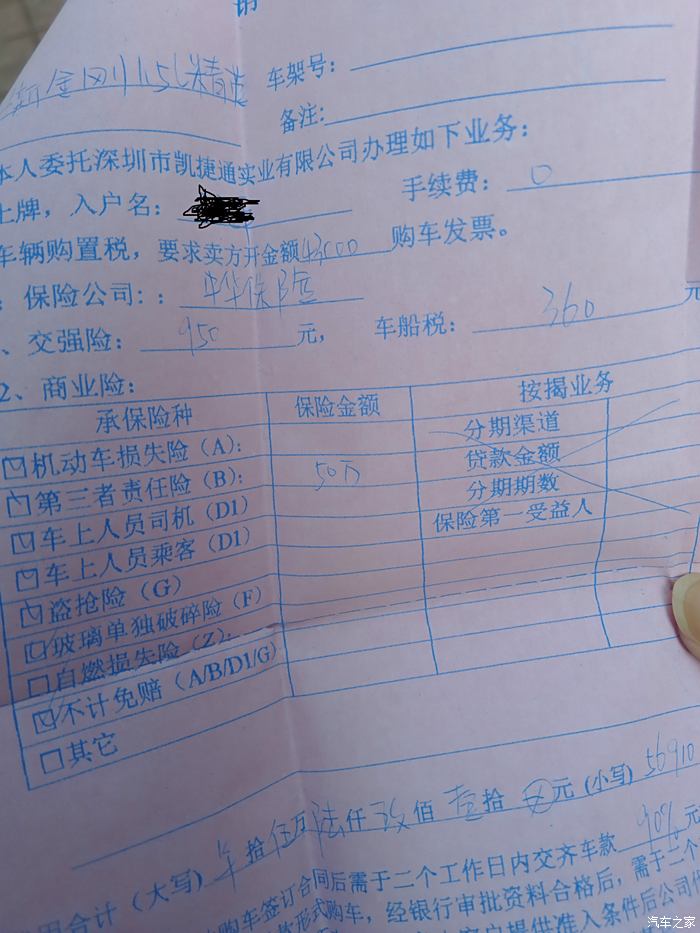 销
车架号：
备注:
本人委托深圳市凯捷通实业有限公司办理如下业务：
上牌，入户名： 手续费： 0
车辆购置税，要求卖方开金额43000购车发票。
：保险公司：： 中华保险
、交强险： 950 元， 车船税： 360 元
2、商业险：
承保险种 保险金额 按揭业务
☑机动车损失险（A）： 分期渠道
☑第三者责任险（B）： 50万 贷款金额
☑车上人员司机（D1） 分期期数
☑车上人员乘客（D1） 保险第一受益人
☑盗抢险（G）
☑玻璃单独破碎险（F）
□自燃损失险（Z）：
☑不计免赔（A/B/D1/G）
□其它
用合计（大写） 拾伍万陆仟玖佰壹拾 元（小写）56910
购车签订合同后需于二个工作日内交齐车款 90% 元
形式购车，经银行审批资料合格后，需于二个
客户提供准入条件后公司代
汽车之家